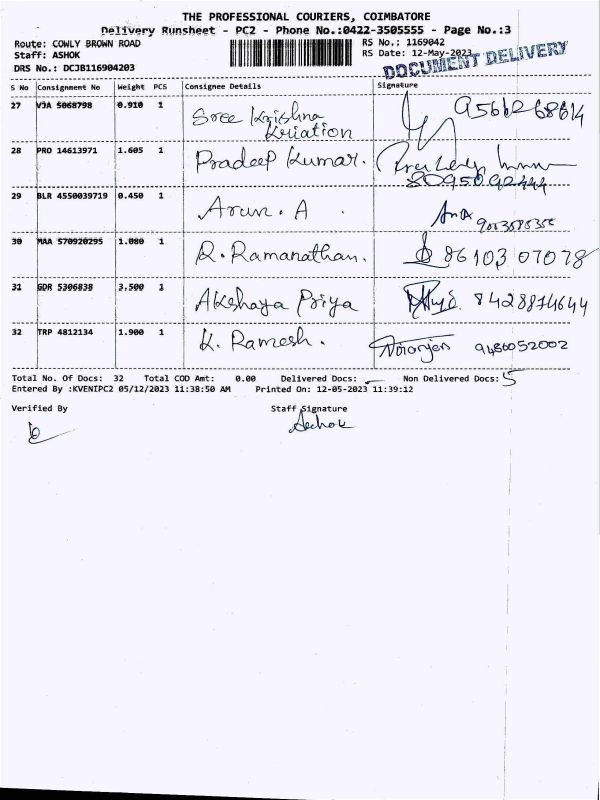 THE PROFESSIONAL COURIERS, COIMBATORE
Delivery Runsheet - PC2 - Phone No.:0422-3505555 - Page No.:3
Route: COWLY BROWN ROAD RS No.: 1169042
Staff: ASHOK RS Date: 12-May-2023
DRS No.: DCJB116904203 DOCUMENT DELIVERY
S No Consignment No Weight PCS Consignee Details Signature
27 VJA 5068798 0.910 1 Sree Krishna 9566268614
Kriation
28 PRO 14613971 1.605 1 Pradeep Kumar.
8095092444
29 BLR 4550039719 0.450 1 Arun. A .
30 MAA 570920295 1.080 1 R. Ramanathan. 86103 07078
31 GDR 5306838 3.500 1 Akshaya Priya 8428874644
32 TRP 4812134 1.900 1 K. Ramesh. 9486052002
Total No. Of Docs: 32 Total COD Amt: 0.00 Delivered Docs: Non Delivered Docs: 5
Entered By :KVENIPC2 05/12/2023 11:38:50 AM Printed On: 12-05-2023 11:39:12
Verified By Staff Signature
Ashok